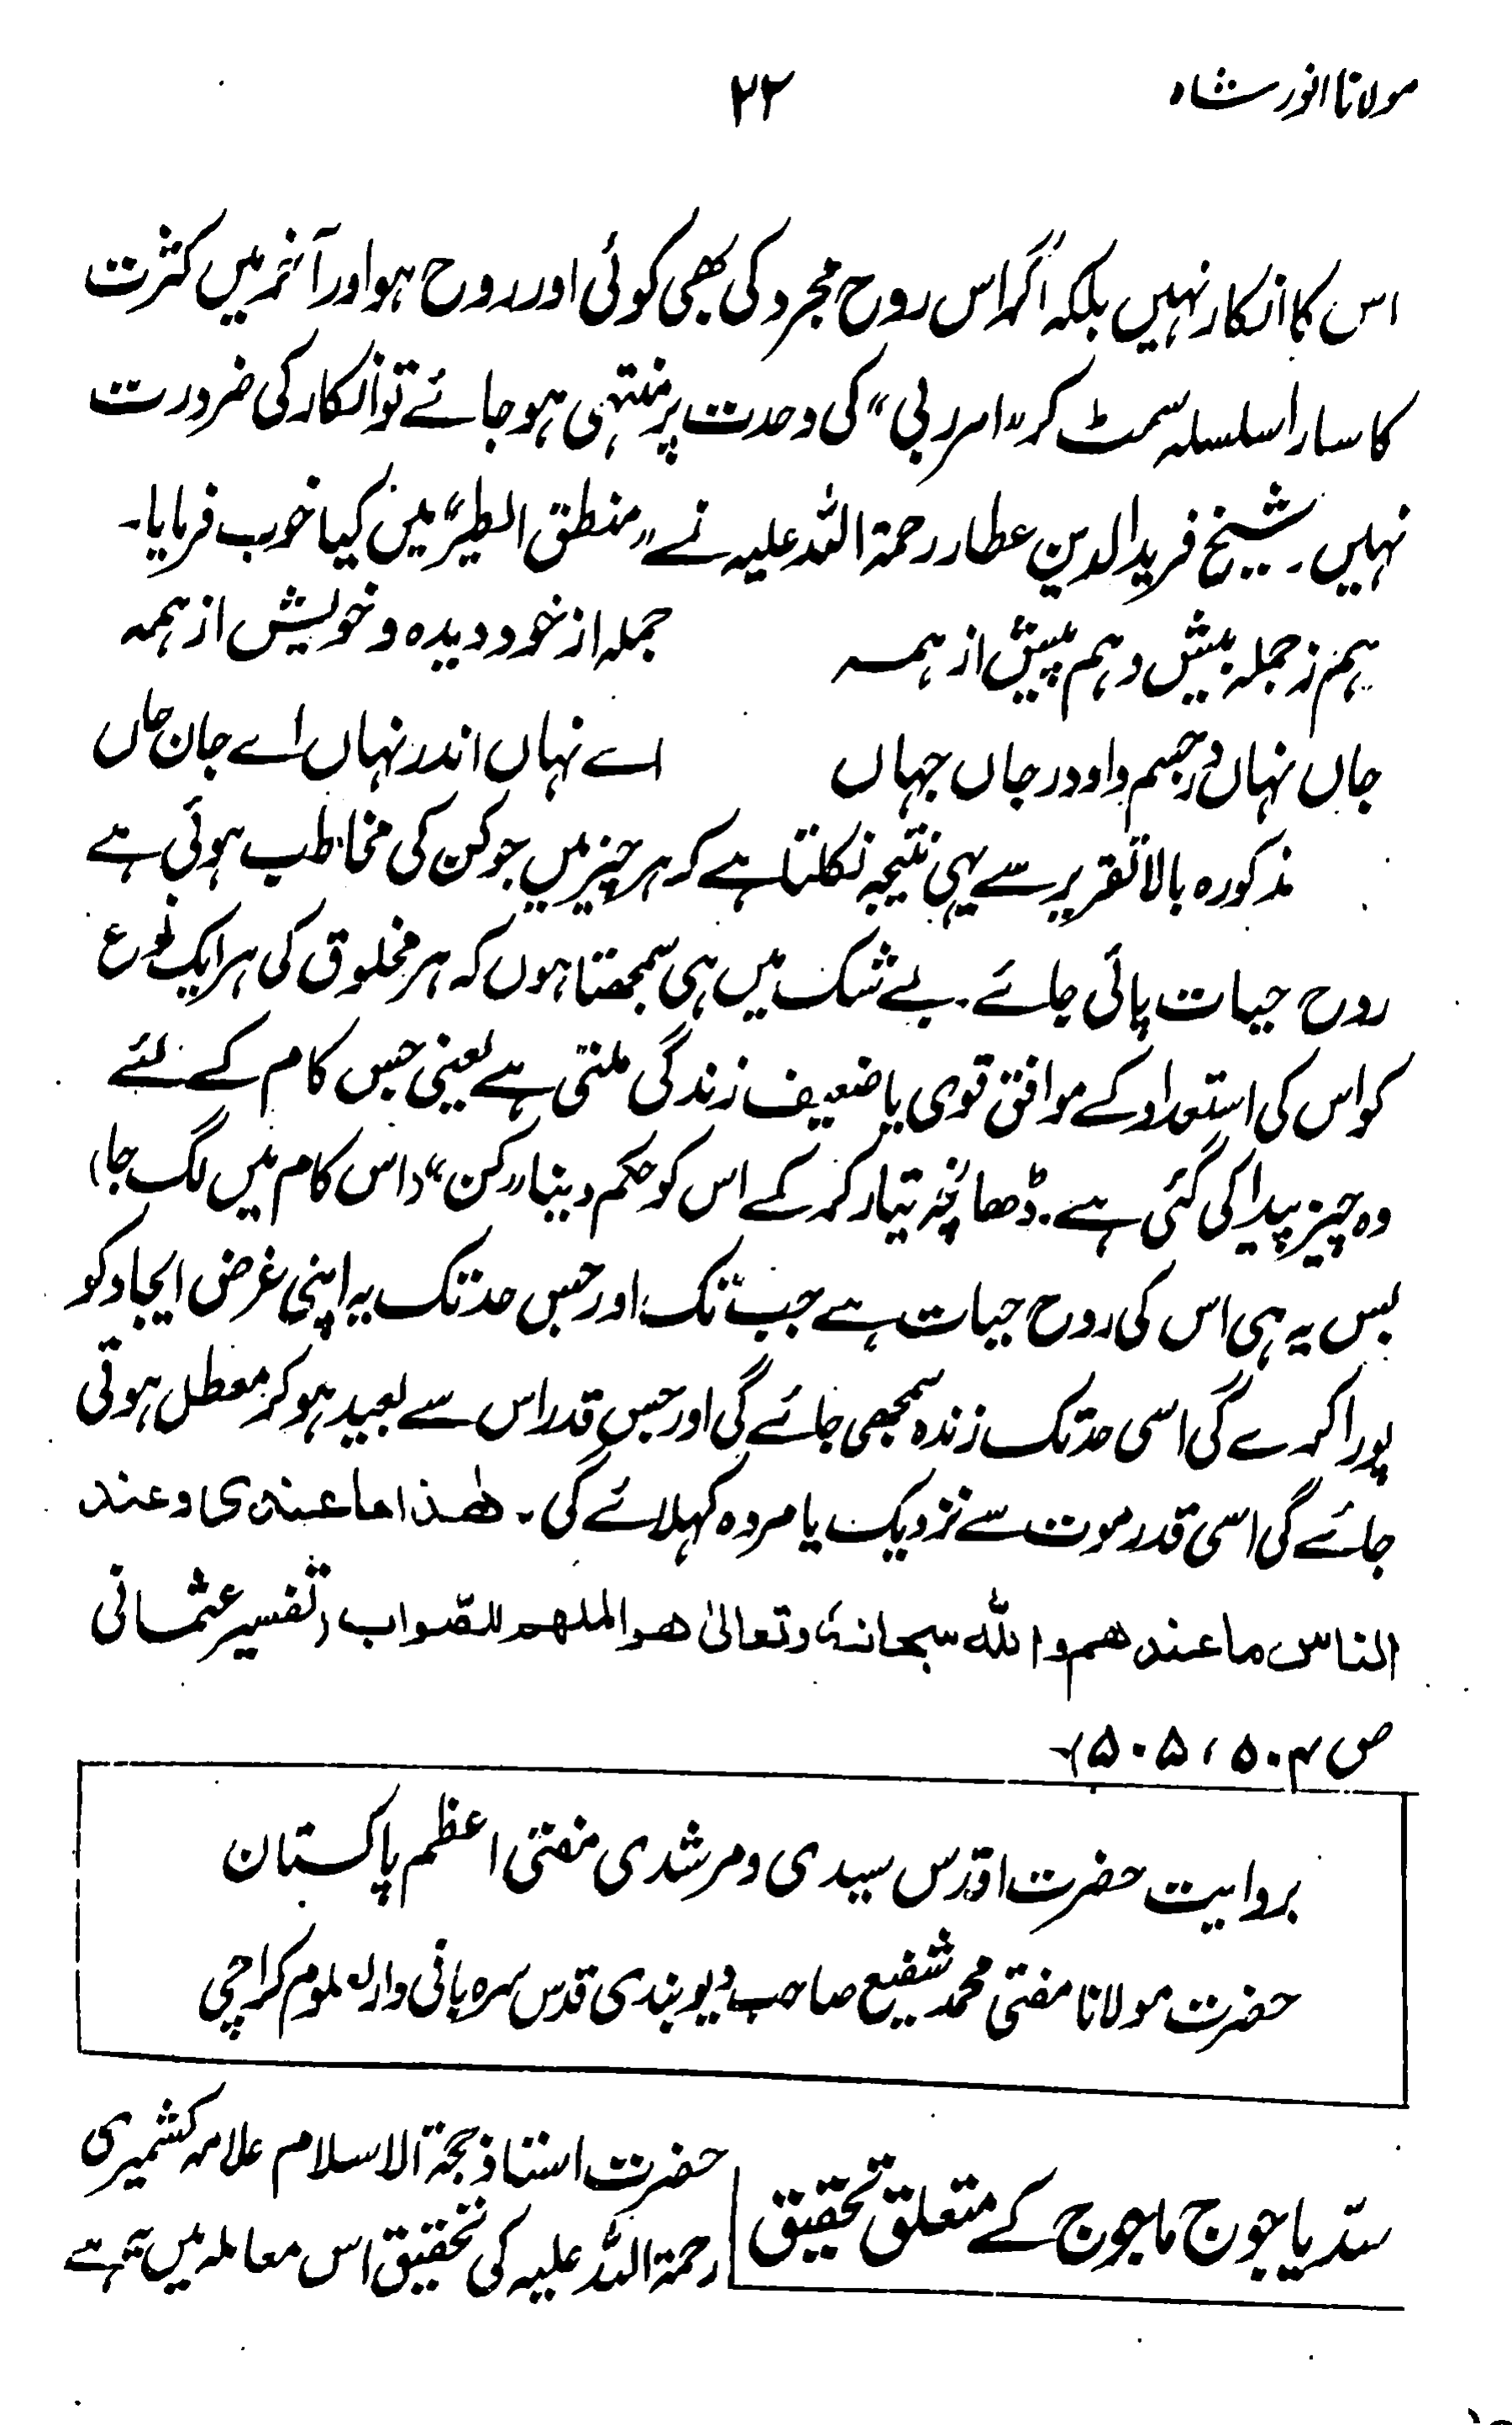 مولانا انور شاہ
۲۲
اس کا انکار نہیں بلکہ اگر اس روح مجرد کی بھی کوئی اور روح ہو اور آخر میں کثرت
کا سارا سلسلہ سمٹ کر "امر ربی" کی وحدت پر منتہی ہو جائے تو انکار کی ضرورت
نہیں۔ شیخ فرید الدین عطار رحمۃ اللہ علیہ نے "منطق الطیر" میں کیا خوب فرمایا۔
ہم ز جملہ بیش و ہم پیش از ہمہ جملہ از خود دیدہ و خویش از ہمہ
جاں نہاں در جسم و او در جاں جہاں اے نہاں اندر نہاں اے جان جاں
مذکورہ بالا تقریر سے یہی نتیجہ نکلتا ہے کہ ہر چیز میں جو کن کی مخاطب ہوئی ہے
روح حیات پائی جائے۔ بے شک میں ہی سمجھتا ہوں کہ ہر مخلوق کی ہر ایک نوع
کو اس کی استعداد کے موافق قوی یا ضعیف زندگی ملتی ہے یعنی جس کام کے لئے
وہ چیز پیدا کی گئی ہے۔ ڈھانچہ تیار کر کے اس کو حکم دینا "کن" (اس کام میں لگ جا)
بس یہ ہی اس کی روح حیات ہے جب تک اور جس حد تک یہ اپنی غرض ایجاد کو
پورا کرے گی اسی حد تک زندہ سمجھی جائے گی اور جس قدر اس سے بعید ہو کر معطل ہوتی
جائے گی اسی قدر موت سے نزدیک یا مردہ کہلائے گی۔ ھٰذا ما عندی و عند
الناس ما عندھم و اللہ سبحانہٗ و تعالیٰ ھو الملھم للصّواب (تفسیر عثمانی
ص ۵۰۴، ۵۰۵)
بروایت حضرت اقدس سیدی و مرشدی مفتی اعظم پاکستان
حضرت مولانا مفتی محمد شفیع صاحب دیوبندی قدس سرہ بانی دارالعلوم کراچی
سدّ یاجوج ماجوج کے متعلق تحقیق
حضرت استاذ حجۃ الاسلام علامہ کشمیری
رحمۃ اللہ علیہ کی تحقیق اس معاملہ میں یہ ہے